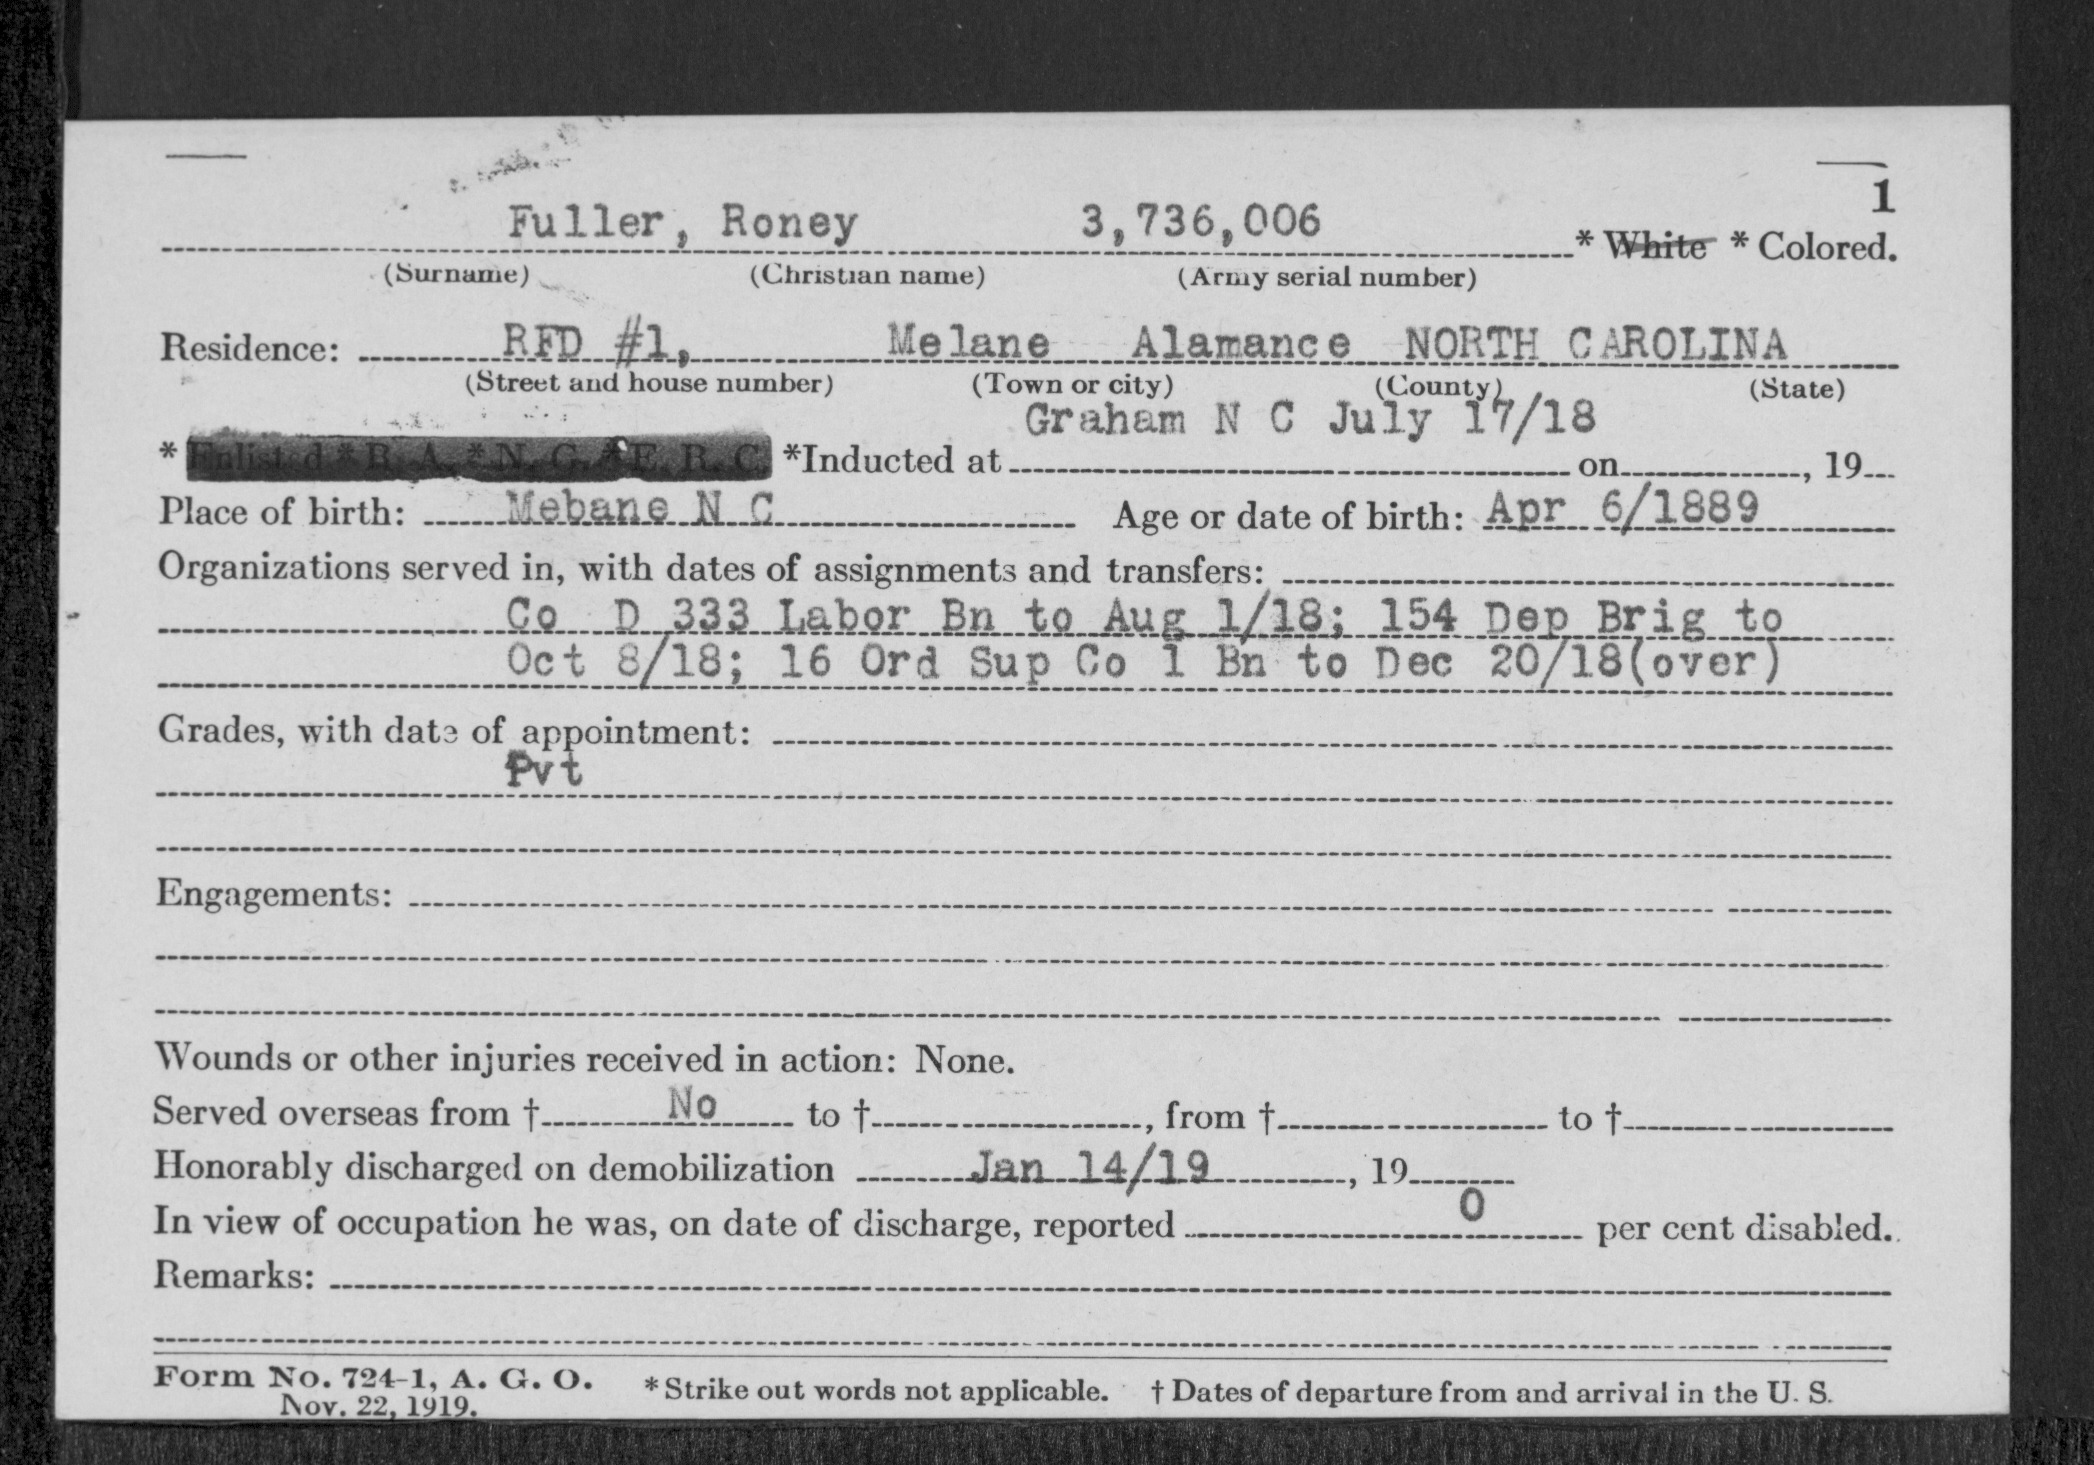 1
Fuller, Roney 3,736,006 * White * Colored.
(Surname) (Christian name) (Army serial number)
Residence: RFD #1, Melane Alamance NORTH CAROLINA
(Street and house number) (Town or city) (County) (State)
Graham N C July 17/18
* Enlisted * R. A. * N. G. * E. R. C. *Inducted at on , 19
Place of birth: Mebane N C Age or date of birth: Apr 6/1889
Organizations served in, with dates of assignments and transfers:
Co D 333 Labor Bn to Aug 1/18; 154 Dep Brig to
Oct 8/18; 16 Ord Sup Co 1 Bn to Dec 20/18(over)
Grades, with date of appointment:
Pvt
Engagements:
Wounds or other injuries received in action: None.
Served overseas from † No to † , from † to †
Honorably discharged on demobilization Jan 14/19 , 19
In view of occupation he was, on date of discharge, reported 0 per cent disabled.
Remarks:
Form No. 724-1, A. G. O. * Strike out words not applicable. † Dates of departure from and arrival in the U. S.
Nov. 22, 1919.